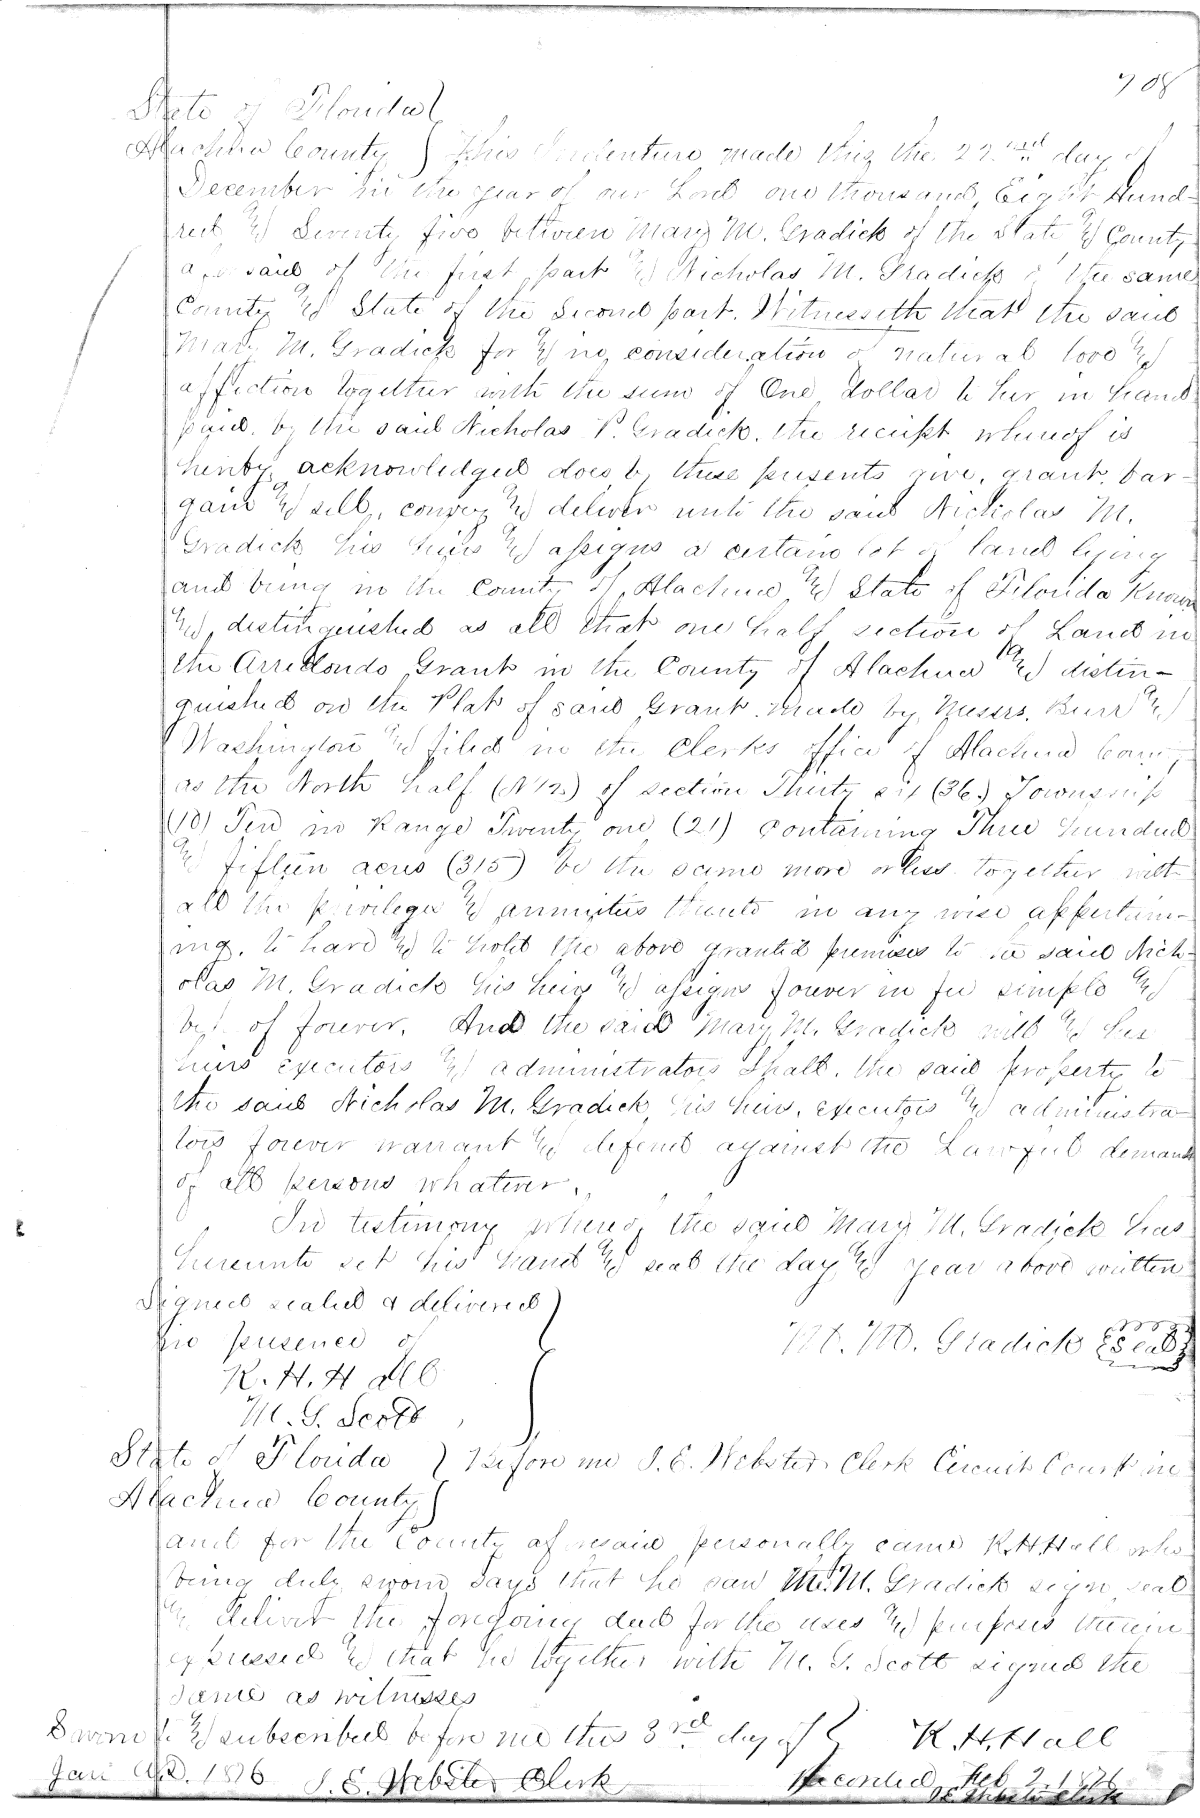 708
State of Florida }
Alachua County } This Indenture made this the 22nd day of
December in the year of our Lord one thousand, Eight Hund-
red & Seventy five between Mary M. Gradick of the State & County
aforesaid of the first part & Nicholas M. Gradick of the same
County & State of the Second part. Witnesseth that the said
Mary M. Gradick for & in consideration of natural love &
affection together with the sum of One dollar to her in hand
paid. by the said Nicholas P. Gradick. the reciept whereof is
hereby acknowledged does by these presents give, grant, bar-
gain & sell, convey & deliver unto the said Nicholas M.
Gradick his heirs & assigns a certain lot of land lying
and being in the County of Alachua & State of Florida Known
& distinguished as all that one half section of Land in
the Arredondo Grant in the County of Alachua & distin-
guished on the Plat of said Grant. made by Messrs. Burr &
Washington & filed in the Clerks office of Alachua County
as the North half (N 1/2) of section Thirty six (36.) Township
(10) Ten in Range Twenty one (21) Containing Three hundred
& fifteen acres (315) be the same more or less together with
all the privileges & thereto in any wise appertain-
ing. to have & to hold the above granted premises to the said Nich-
olas M. Gradick his heirs & assigns forever in fee simple &
of forever. And the said Mary M. Gradick will & her
heirs executors & administrators Shall. the said property to
the said Nicholas M. Gradick, his heirs, executors & administra-
tors forever warrant & defend against the Lawful demands
of all persons whatever.
In testimony whereof the said Mary M. Gradick has
hereunto set his hand & seal the day & year above written
Signed sealed & delivered }
in presence of M. M. Gradick {Seal}
R. H. Hall
M. G. Scott }
State of Florida } Before me J. E. Webster Clerk Circuit Court in
Alachua County }
and for the County aforesaid personally came R. H. Hall who
being duly sworn says that he saw M. M. Gradick sign, seal
& deliver the foregoing deed for the uses & purposes therein
expressed & that he together with M. G. Scott signed the
same as witnesses
Sworn to & subscribed before me this 3rd day of } R. H. Hall
Jan A.D. 1876 J. E. Webster Clerk Recorded Feb 2. 1876
J.E. Webster Clerk